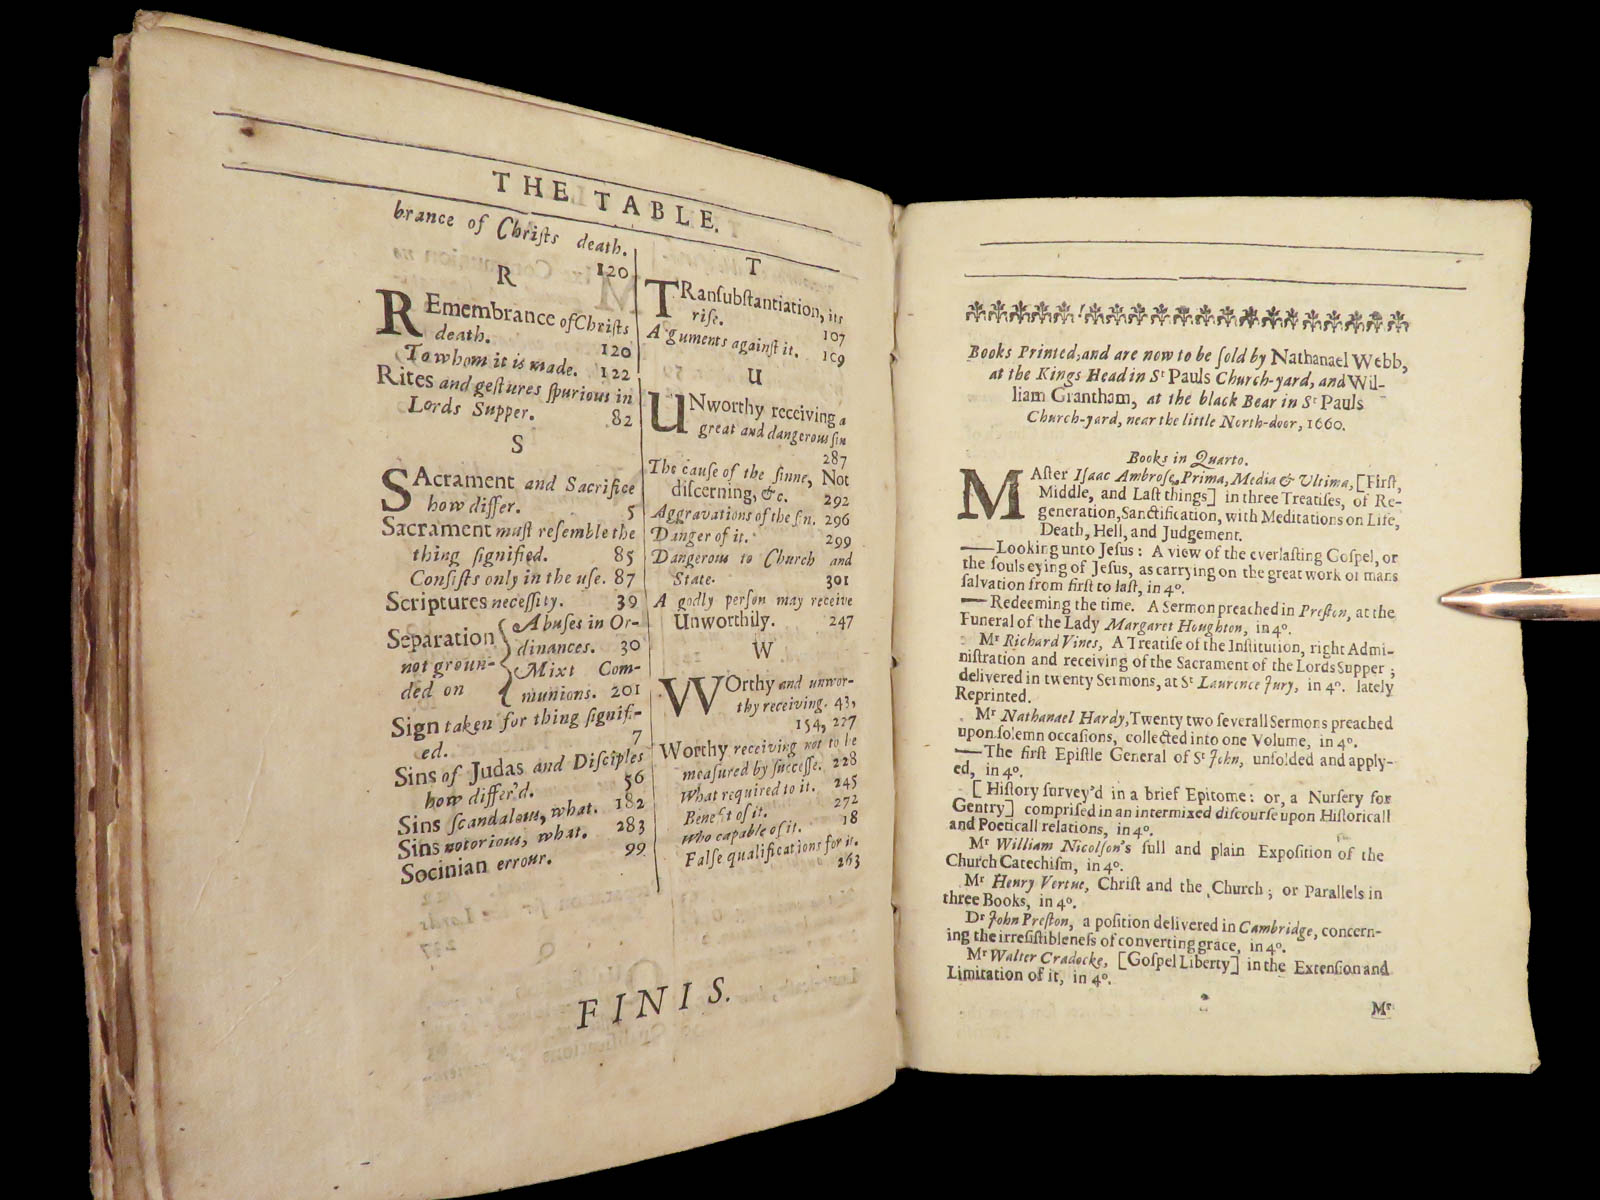 THE TABLE.
brance of Chriſts death.
120
R
REmembrance of Chriſts
death. 120
To whom it is made. 122
Rites and geſtures ſpurious in
Lords Supper. 82
S
SAcrament and Sacrifice
how differ. 5
Sacrament muſt reſemble the
thing ſignified. 85
Conſiſts only in the uſe. 87
Scriptures neceſſity. 39
Separation
not groun-
ded on
Abuſes in Or-
dinances. 30
Mixt Com-
munions. 201
Sign taken for thing ſignifi-
ed. 7
Sins of Judas and Diſciples
how differ'd. 56
Sins ſcandalous, what. 182
Sins notorious, what. 283
Socinian errour. 99
T
TRanſubſtantiation, its
riſe. 107
Aguments againſt it. 109
U
UNworthy receiving a
great and dangerous ſin
287
The cauſe of the ſinne, Not
diſcerning, &c. 292
Aggravations of the ſin. 296
Danger of it. 299
Dangerous to Church and
State. 301
A godly perſon may receive
Unworthily. 247
W
WOrthy and unwor-
thy receiving. 43,
154, 227
Worthy receiving not to be
meaſured by ſucceſſe. 228
What required to it. 245
Benefit of it. 272
Who capable of it. 18
Falſe qualifications for it.
263
FINIS.
Books Printed, and are now to be ſold by Nathanael Webb,
at the Kings Head in St Pauls Church-yard, and Wil-
liam Grantham, at the black Bear in St Pauls
Church-yard, near the little North-door, 1660.
Books in Quarto.
MAſter Iſaac Ambroſe, Prima, Media & Ultima, [Firſt,
Middle, and Laſt things] in three Treatiſes, of Re-
generation, Sanctification, with Meditations on Life,
Death, Hell, and Judgement.
—Looking unto Jeſus: A view of the everlaſting Goſpel, or
the ſouls eying of Jeſus, as carrying on the great work of mans
ſalvation from firſt to laſt, in 4o.
— Redeeming the time. A Sermon preached in Preſton, at the
Funeral of the Lady Margaret Houghton, in 4o.
Mr Richard Vines, A Treatiſe of the Inſtitution, right Admi-
niſtration and receiving of the Sacrament of the Lords Supper;
delivered in twenty Sermons, at St Laurence Jury, in 4o. lately
Reprinted.
Mr Nathanael Hardy, Twenty two ſeverall Sermons preached
upon ſolemn occaſions, collected into one Volume, in 4o.
—The firſt Epiſtle General of St John, unfolded and apply-
ed, in 4o.
[Hiſtory ſurvey'd in a brief Epitome: or, a Nurſery for
Gentry] compriſed in an intermixed diſcourſe upon Hiſtoricall
and Poeticall relations, in 4o.
Mr William Nicolſon's full and plain Expoſition of the
Church Catechiſm, in 4o.
Mr Henry Vertue, Chriſt and the Church; or Parallels in
three Books, in 4o.
Dr John Preſton, a poſition delivered in Cambridge, concern-
ing the irreſiſtibleneſs of converting grace, in 4o.
Mr Walter Cradocke, [Goſpel Liberty] in the Extenſion and
Limitation of it, in 4o.
Mr